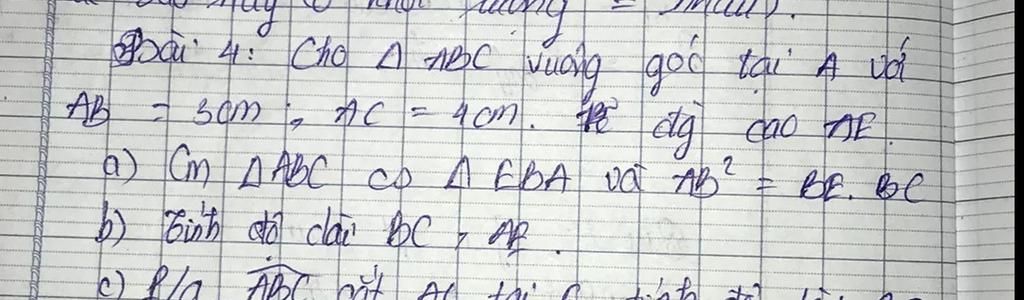 Bài 4: Cho Δ ABC vuông góc tại A với
AB = 3cm; AC = 4cm. Kẻ đg cao AE.
a) Cm Δ ABC ∽ Δ EBA và AB² = BE. BC
b) Tính độ dài BC, AE.
c) P/g ABC cắt AC tại